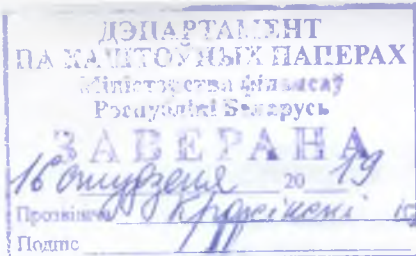 ДЭПАРТАМЕНТ
ПА КАШТОЎНЫХ ПАПЕРАХ
Міністэрства фінансаў
Рэспублікі Беларусь
ЗАВЕРАНА
16 студзеня 20 19
Прозвішча
Подпіс